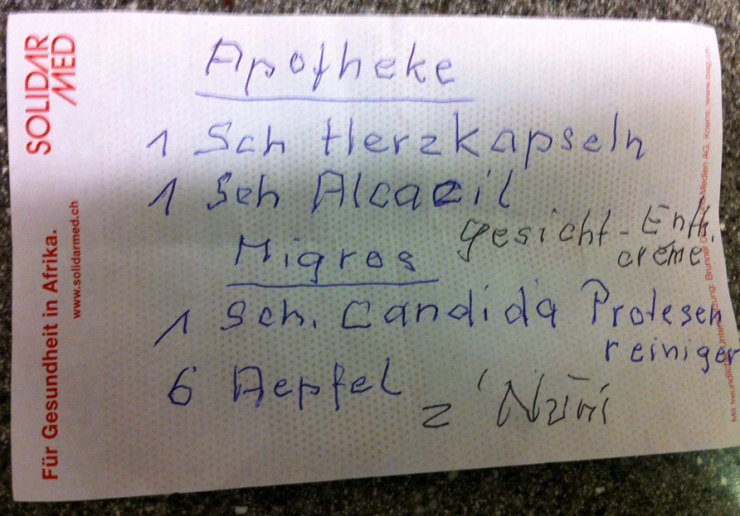 SOLIDAR
MED
Für Gesundheit in Afrika.
www.solidarmed.ch
Apotheke
1 Sch Herzkapseln
1 Sch Alcacil
gesicht-Enth.
crème.
Migros
1 Sch. Candida Protesen
reiniger
6 Aepfel
z' Nüni
Medien AG, Kriens, www.bag.ch